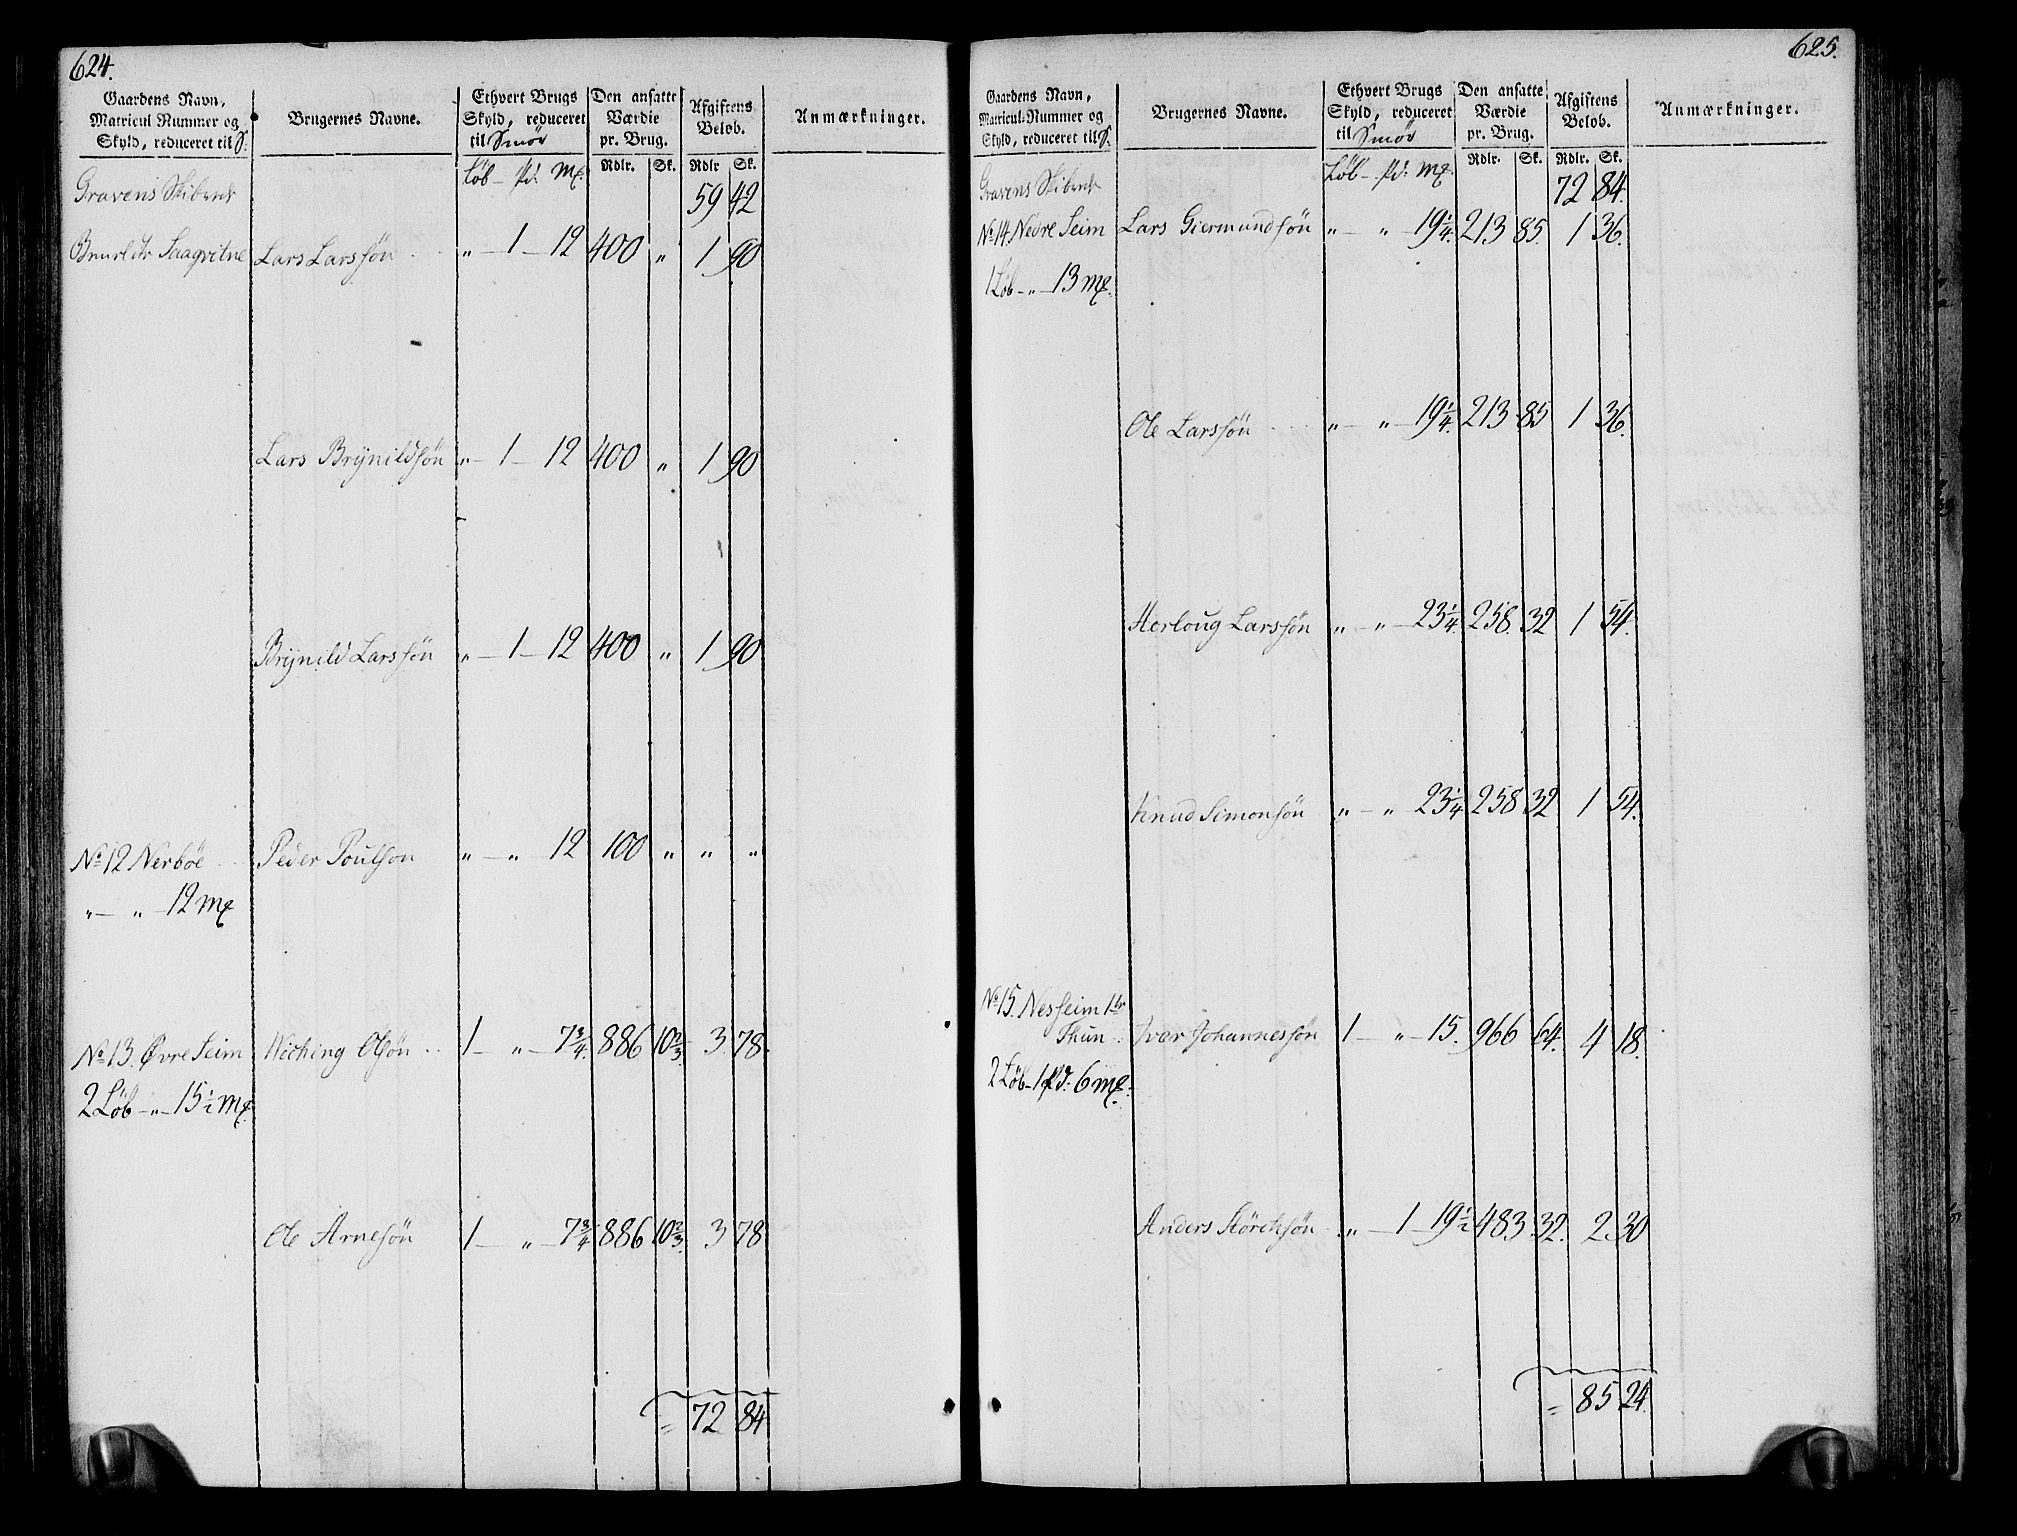 624.
Gaardens Navn, Matricul Nummer og Skyld, reduceret til S. | Brugernes Navne. | Ethvert Brugs Skyld, reduceret til Smör | Den ansatte Værdie pr. Brug. | Afgiftens Belöb. | Anmærkninger.
Löb – pd: mk. | Rdlr. Sk. | Rdlr Sk.
Gravens Skibrede 59 42
Saaqvitne Lars Larssön „ – 1 – 12 400 „ 1 90
Lars Brÿnildsön „ – 1 – 12 400 „ 1 90
Brÿnild Larssön „ – 1 – 12 400 „ 1 90
No 12 Nerböe Peder Poulson „ – „ 12 100 „ „ „
„ – „ 12 mk
No 13. Övre Seim Wiching Olsön 1 – „ – 7 3/4. 886 10 2/3 3 78.
2 Löb – „ – 15 1/2 mk.
Ole Arnesön 1 – „ – 7 3/4 886 10 2/3. 3 78
= 72 84
625.
Gaardens Navn, Matricul-Nummer og Skyld, reduceret til S. | Brugernes Navne. | Ethvert Brugs Skyld, reduceret til Smör | Den ansatte Værdie pr. Brug. | Afgiftens Belöb. | Anmærkninger.
Löb – pd: mk | Rdlr. Sk. | Rdlr. Sk.
Gravens Skibrede 72 84.
No 14. Nedre Seim Lars Giermundsön „ – „ – 19 1/4. 213 85. 1 36.
1 Löb – „ – 13 mk.
Ole Larssön „ – „ – 19 1/4. 213 85 1 36.
Herloug Larssön „ – „ – 23 1/4. 258. 32 1 54.
Knud Simonsön „ – „ 23 1/4 258 32 1 54.
No 15. Nesheim 1te
Thun Iver Johannessön 1 – „ – 15. 966 64. 4 18.
2 Löb – 1 pd: 6 mk.
Anders Störchsön „ – 1 – 19 1/2 483 32. 2 30
= 85 24.